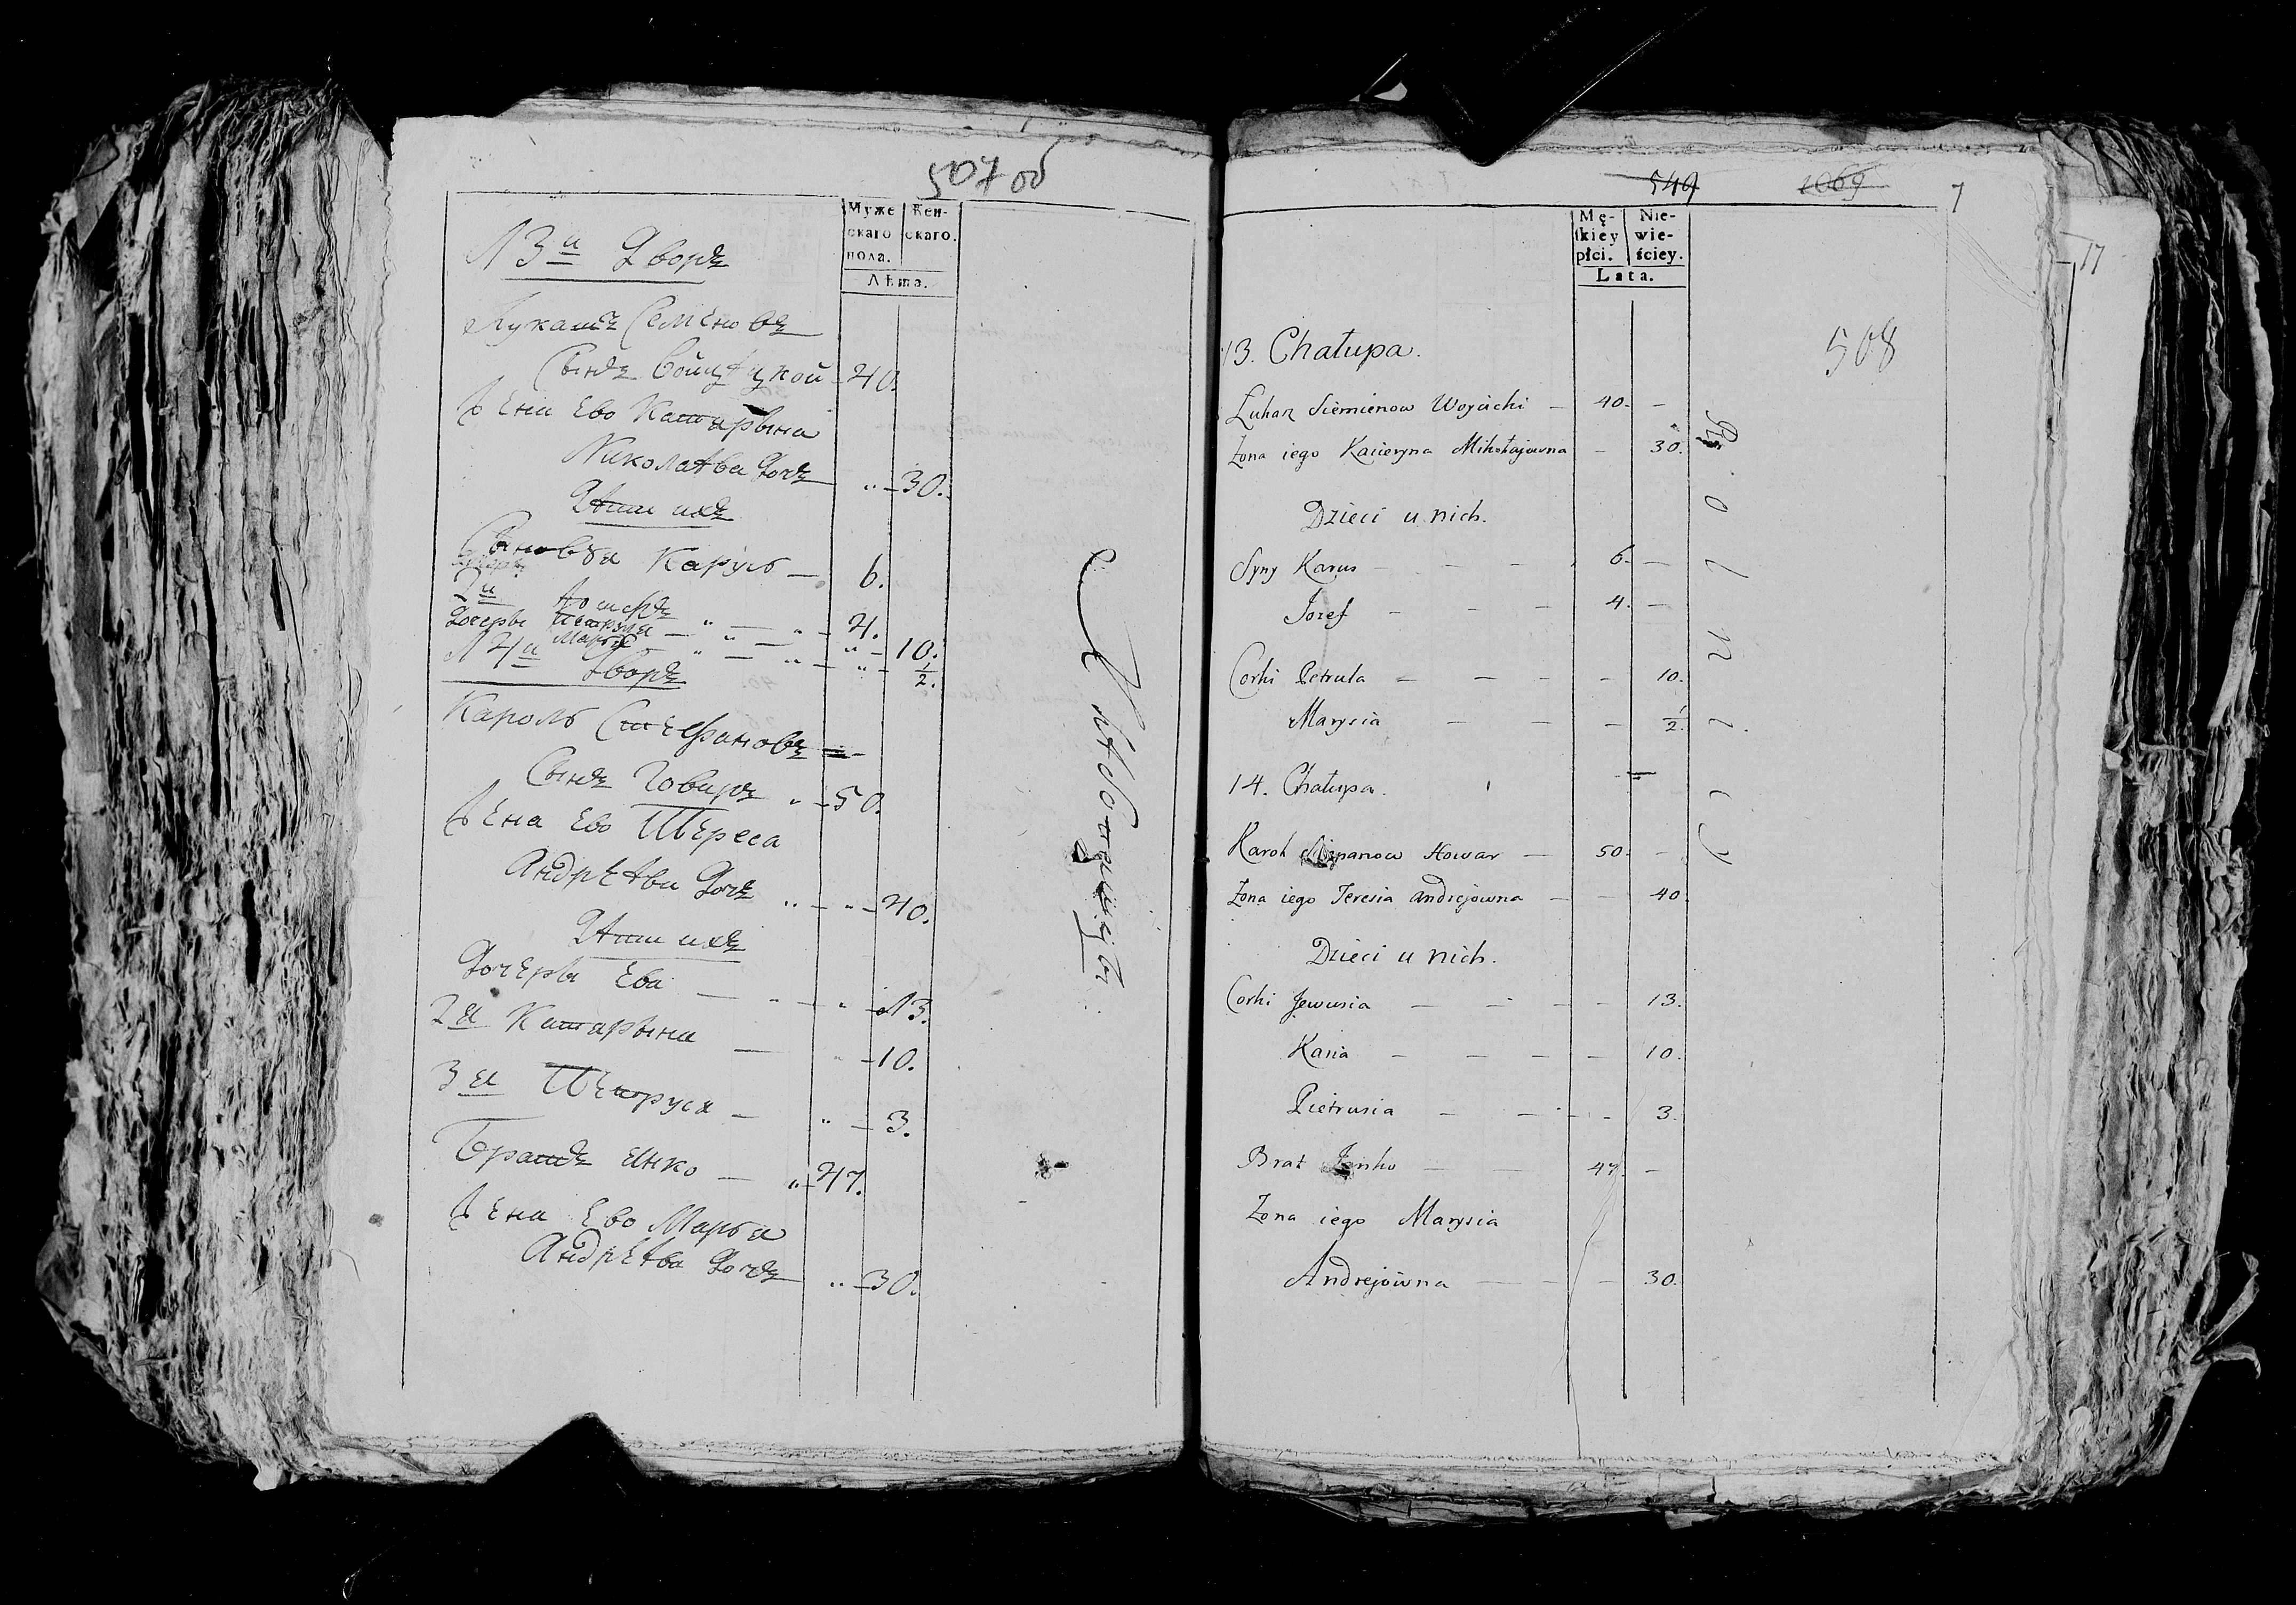 507 об
Муже
скаго
пола.
Жен-
скаго.
Лѣта.
13й Дворъ
Лукашъ Семеновъ
Сынъ Войцѣцкой 40.
Жена ево Катарына
Николаѣва дочь " 30.
Дѣти ихъ
Сыновья Карусь — 6.
2й Іошефъ " — " — 4.
Дочери Петруля — " — " — 10.
Марья " — " — " — 1/2.
14й Дворъ
Кароль Стефановъ
Сынъ Говаръ " 50.
Жена ево Тереса
Андрѣѣва дочь " — " — 40.
Дѣти ихъ
Дочери Ева — " — " — 13.
2я Катарына — " — 10.
3я Петруся — " — 3.
Братъ Янко — " 47.
Жена ево Марья
Андрѣѣва дочь " — 30.
549 1069 7
17
508
Mę-
skiey
płci.
Nie-
wie-
ściey.
Lata.
13. Chałupa.
Łukasz Siemienow Woycicki — 40. —
Żona iego Kacieryna Mikołajowna — 30.
Dzieci u nich.
Syny Karus — — — 6. —
Jozef — — — 4. —
Corki Petrula — — — — 10.
Marysia — — — 1/2.
14. Chałupa.
Karol Sczepanow Howar — 50. —
Żona iego Teresia Andrejowna — — 40.
Dzieci u nich.
Corki Jewusia — — — — 13.
Kasia — — — — 10.
Pietrusia — — — 3.
Brat Janko — — 47. —
Żona iego Marysia
Andrejowna — — — 30.
Rolnicy